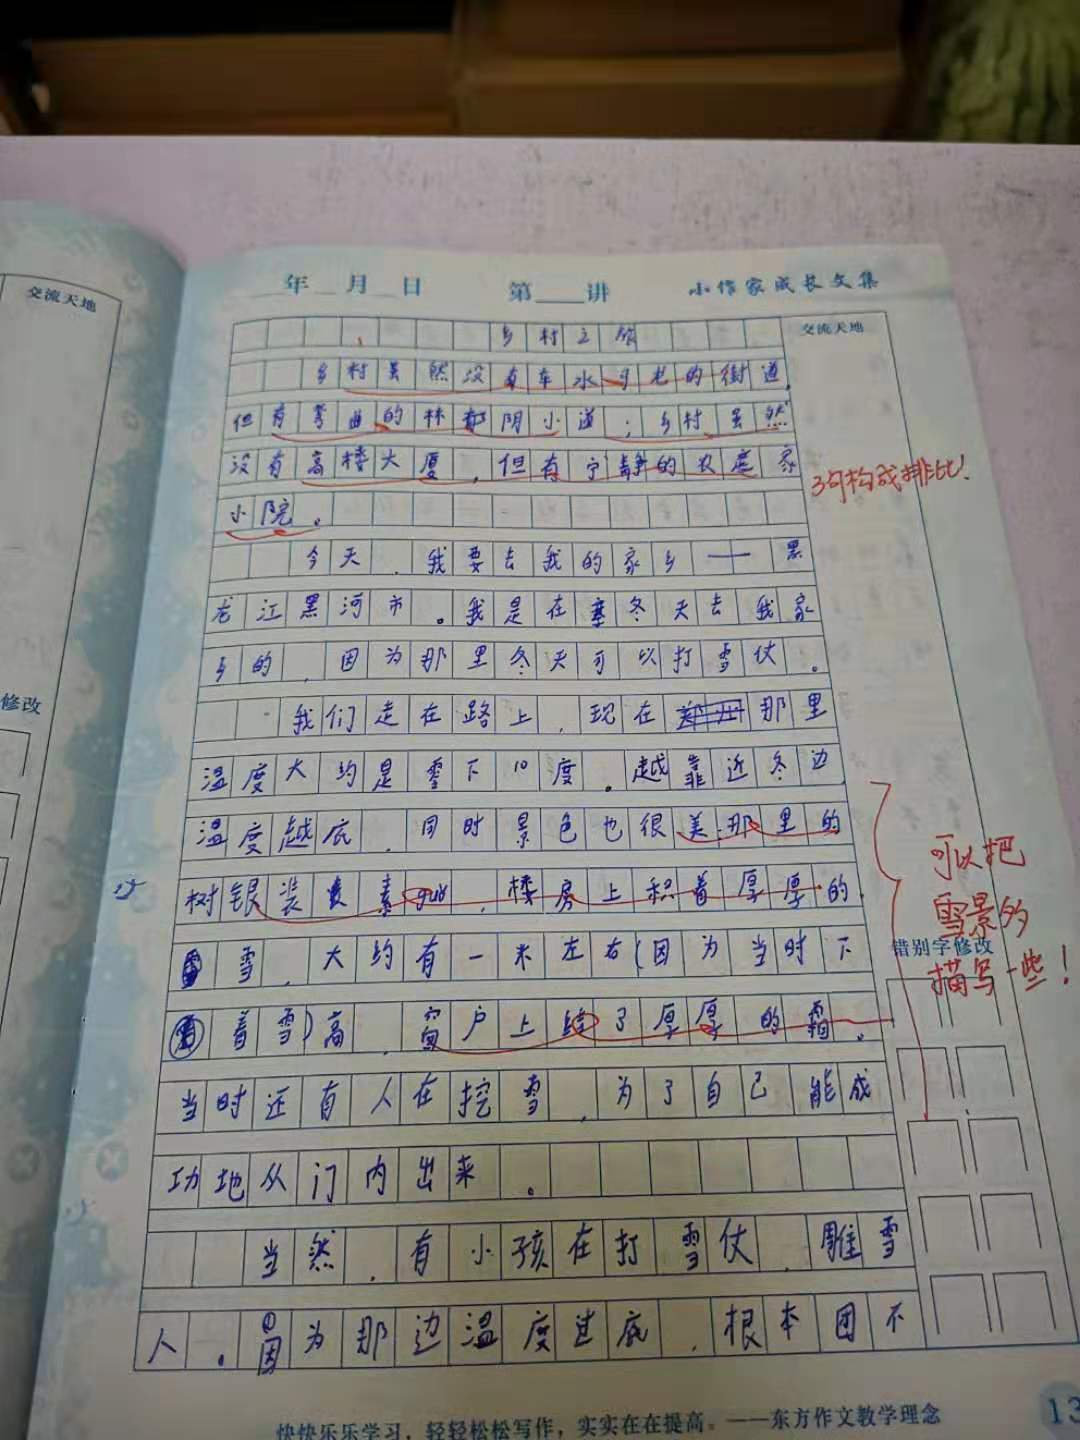 交流天地
修改
年 月 日 第 讲 小作家成长文集
乡村之旅
交流天地
乡村虽然没有车水马龙的街道,
但有弯曲的林阴小道;乡村虽然
没有高楼大厦,但有宁静的农庭家
小院。
3句构成排比!
今天,我要去我的家乡——黑
龙江黑河市。我是在寒冬天去我家
乡的,因为那里冬天可以打雪仗。
我们走在路上,现在那里
温度大约是零下10度。越靠近冬边,
温度越底,同时景色也很美.那里的
树银装素,楼房上积着厚厚的
雪,大约有一米左右(因为当时下
着雪)高,窗户上结了厚厚的霜。
可以把
雪景多
描写一些!
错别字修改
当时还有人在挖雪,为了自己能成
功地从门内出来。
当然,有小孩在打雪仗,雕雪
人。因为那边温度过底,根本团不
快快乐乐学习,轻轻松松写作,实实在在提高。——东方作文教学理念
13